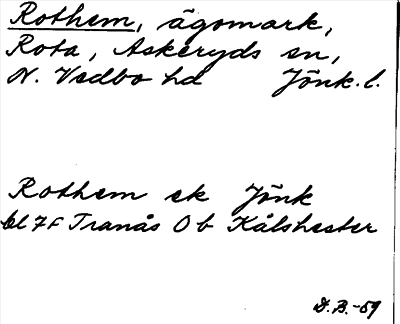 Rothem, ägomark,
Rota, Askeryds sn,
N. Vedbo hd Jönk. l.
Rothem ek Jönk
bl 7F Tranås O b Kålshester
D.B. -59